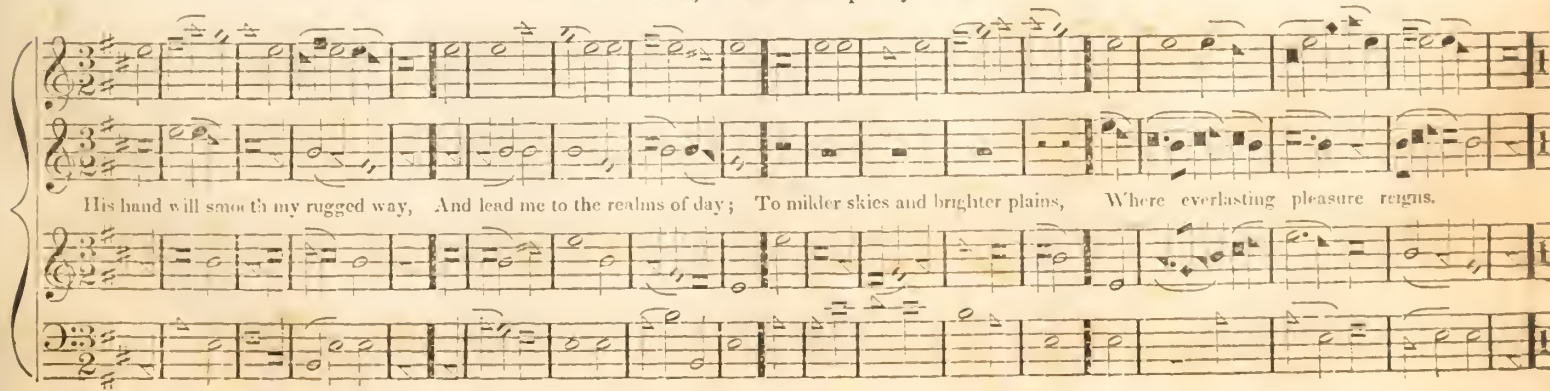 His hand will smooth my rugged way, And lead me to the realms of day; To milder skies and brighter plains, Where everlasting pleasure reigns.